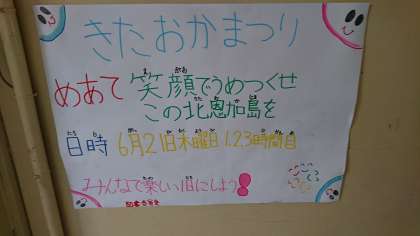 きたおかまつり
めあて 笑顔でうめつくせ
この北恩加島を
日時 6月21日木曜日 1.2.3時間目
みんなで楽しい日にしよう!